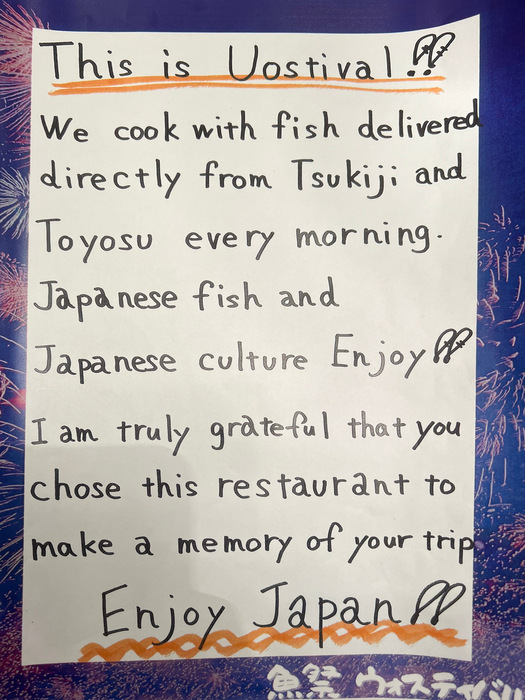 This is Uostival!!
We cook with fish delivered
directly from Tsukiji and
Toyosu every morning.
Japanese fish and
Japanese culture Enjoy!!
I am truly grateful that you
chose this restaurant to
make a memory of your trip
Enjoy Japan!!
魚祭 ウオスティバル